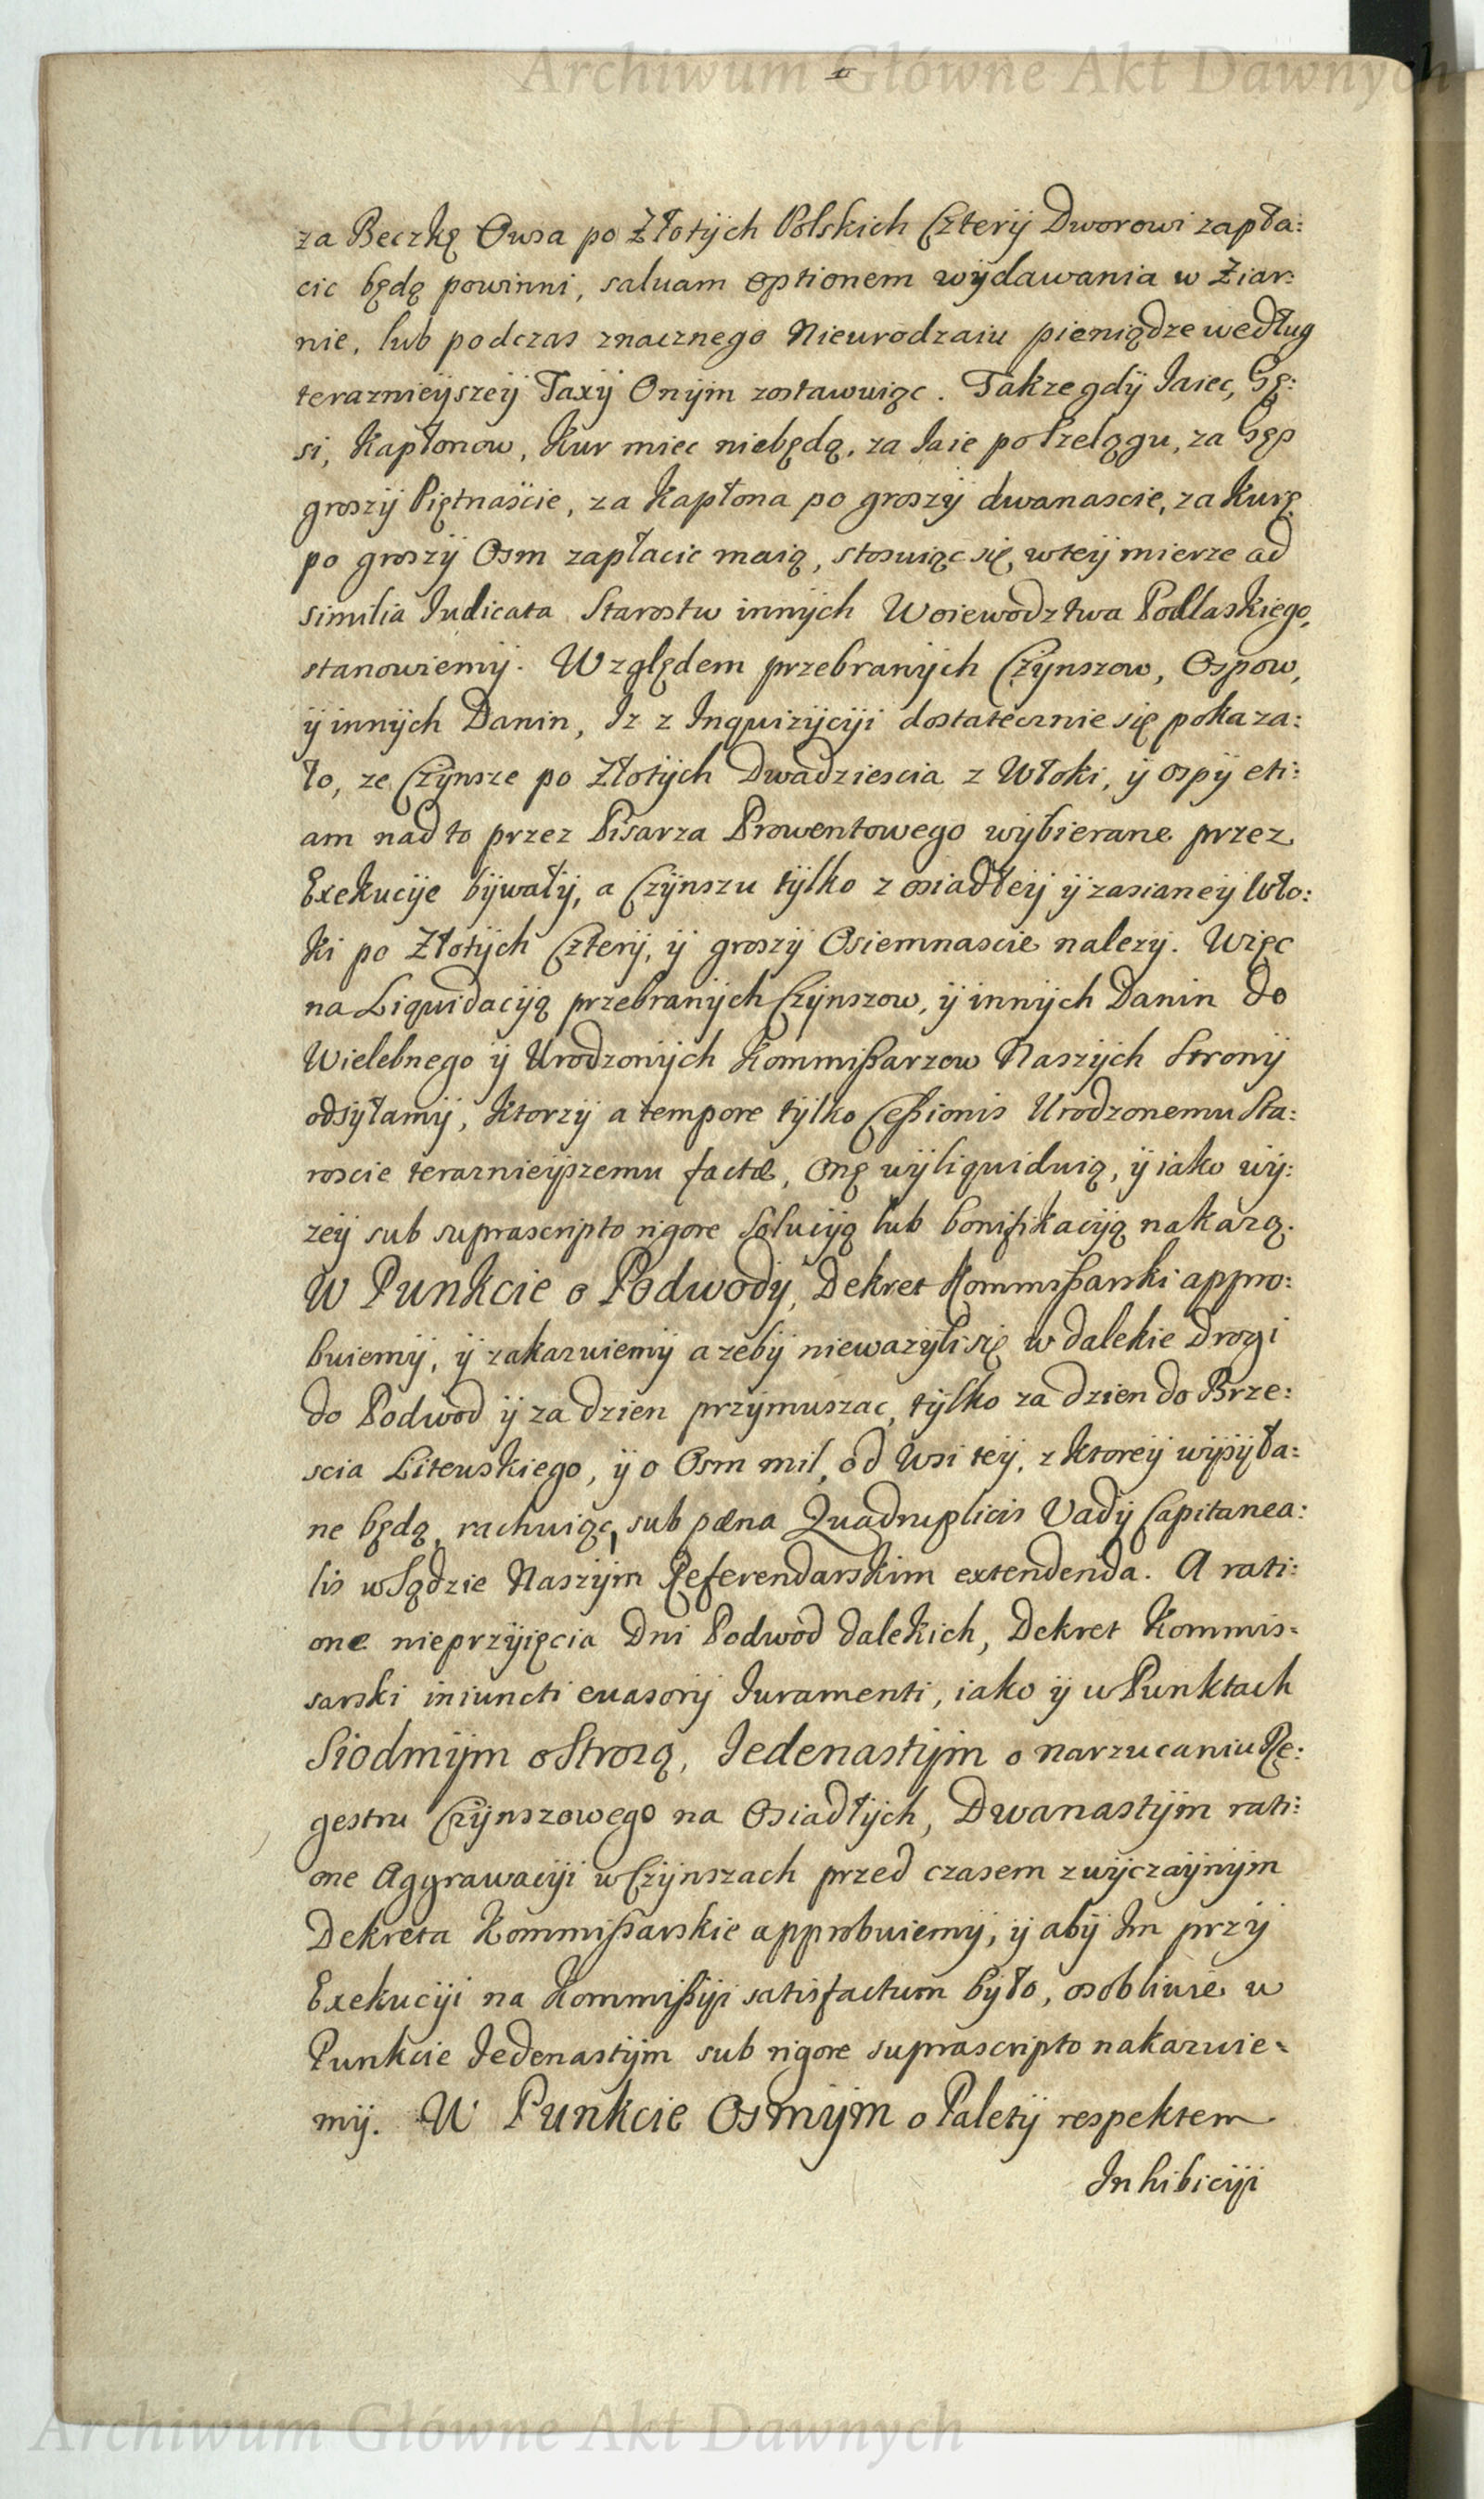 Archiwum Główne Akt Dawnych
za Beczkę Owsa po Złotÿch Polskich Czterÿ Dworowi zapła:
cic będę powinni, saluam optionem wÿdawania w Ziar:
nie, lub podczas znacznego Nieurodzaiu pieniądze według
teraznieÿszeÿ Taxÿ Onÿm zostawuiąc. Takze gdÿ Iaiec, Gę:
si, Kapłonow, Kur miec niebędą, za Iaie po Szelągu, za Gęś
groszÿ Piętnaście, za Kapłona po groszÿ dwanascie, za Kurę
po groszÿ Osm zapłacic maią, stosuiąc się wteÿ mierze ad
similia Iudicata Starostw innÿch Woiewodztwa Podlaskiego,
stanowiemÿ. Względem przebranÿch Czÿnszow, Ospow,
ÿ innÿch Danin, Iz z Inquizÿcÿi dostatecznie się pokaza:
ło, ze Czÿnsze po Złotÿch Dwadziescia z Włoki, ÿ ospÿ eti:
am nad to przez Pisarza Prowentowego wÿbierane przez
Exekucÿe bÿwałÿ, a Czÿnszu tÿlko z osiadłeÿ ÿ zasianeÿ Wło:
ki po Złotÿch Czterÿ, ÿ groszÿ Osiemnascie nalezÿ. Więc
na Liquidacÿą przebranÿch Czÿnszow, ÿ innÿch Danin do
Wielebnego ÿ Urodzonÿch Kommißarzow Naszÿch Stronÿ
odsÿłamÿ, Ktorzÿ a tempore tÿlko Ceßionis Urodzonemu Sta:
roscie teraznieÿszemu factæ, Onę wÿliquiduią, ÿ iako wÿ:
zeÿ sub suprascripto rigore Solucÿą lub bonifikacÿą nakazą.
W Punkcie o Podwodÿ, Dekret Kommißarski appro:
buiemÿ, ÿ zakazuiemÿ azebÿ niewazÿli się w dalekie Drogi
do Podwod ÿ za dzien przÿmuszac, tÿlko za dzien do Brze:
scia Litewskiego, ÿ o Osm mil, od Wsi teÿ, z Ktoreÿ wÿsÿła:
ne będą, rachuiąc, sub pæna Quadruplicis Vadÿ Capitanea:
lis w Sądzie Naszÿm Referendarskim extendenda. A rati:
one nieprzÿięcia Dni Podwod dalekich, Dekret Kommis=
sarski iniuncti euasorÿ Iuramenti, iako ÿ w Punktach
Siodmÿm o Strozą, Iedenastÿm o narzucaniu Re:
gestru Czÿnszowego na Osiadłÿch, Dwanastÿm rati:
one Aggrawacÿi w Czÿnszach przed czasem zwÿczaÿnÿm
Dekreta Kommißarskie approbuiemÿ, ÿ abÿ Im przÿ
Exekucÿi na Kommißÿi satisfactum bÿło, osobliwie w
Punkcie Iedenastÿm sub rigore suprascripto nakazuie=
mÿ. W Punkcie Osmÿm o Paletÿ respektem
Inhibicÿi
Archiwum Główne Akt Dawnych